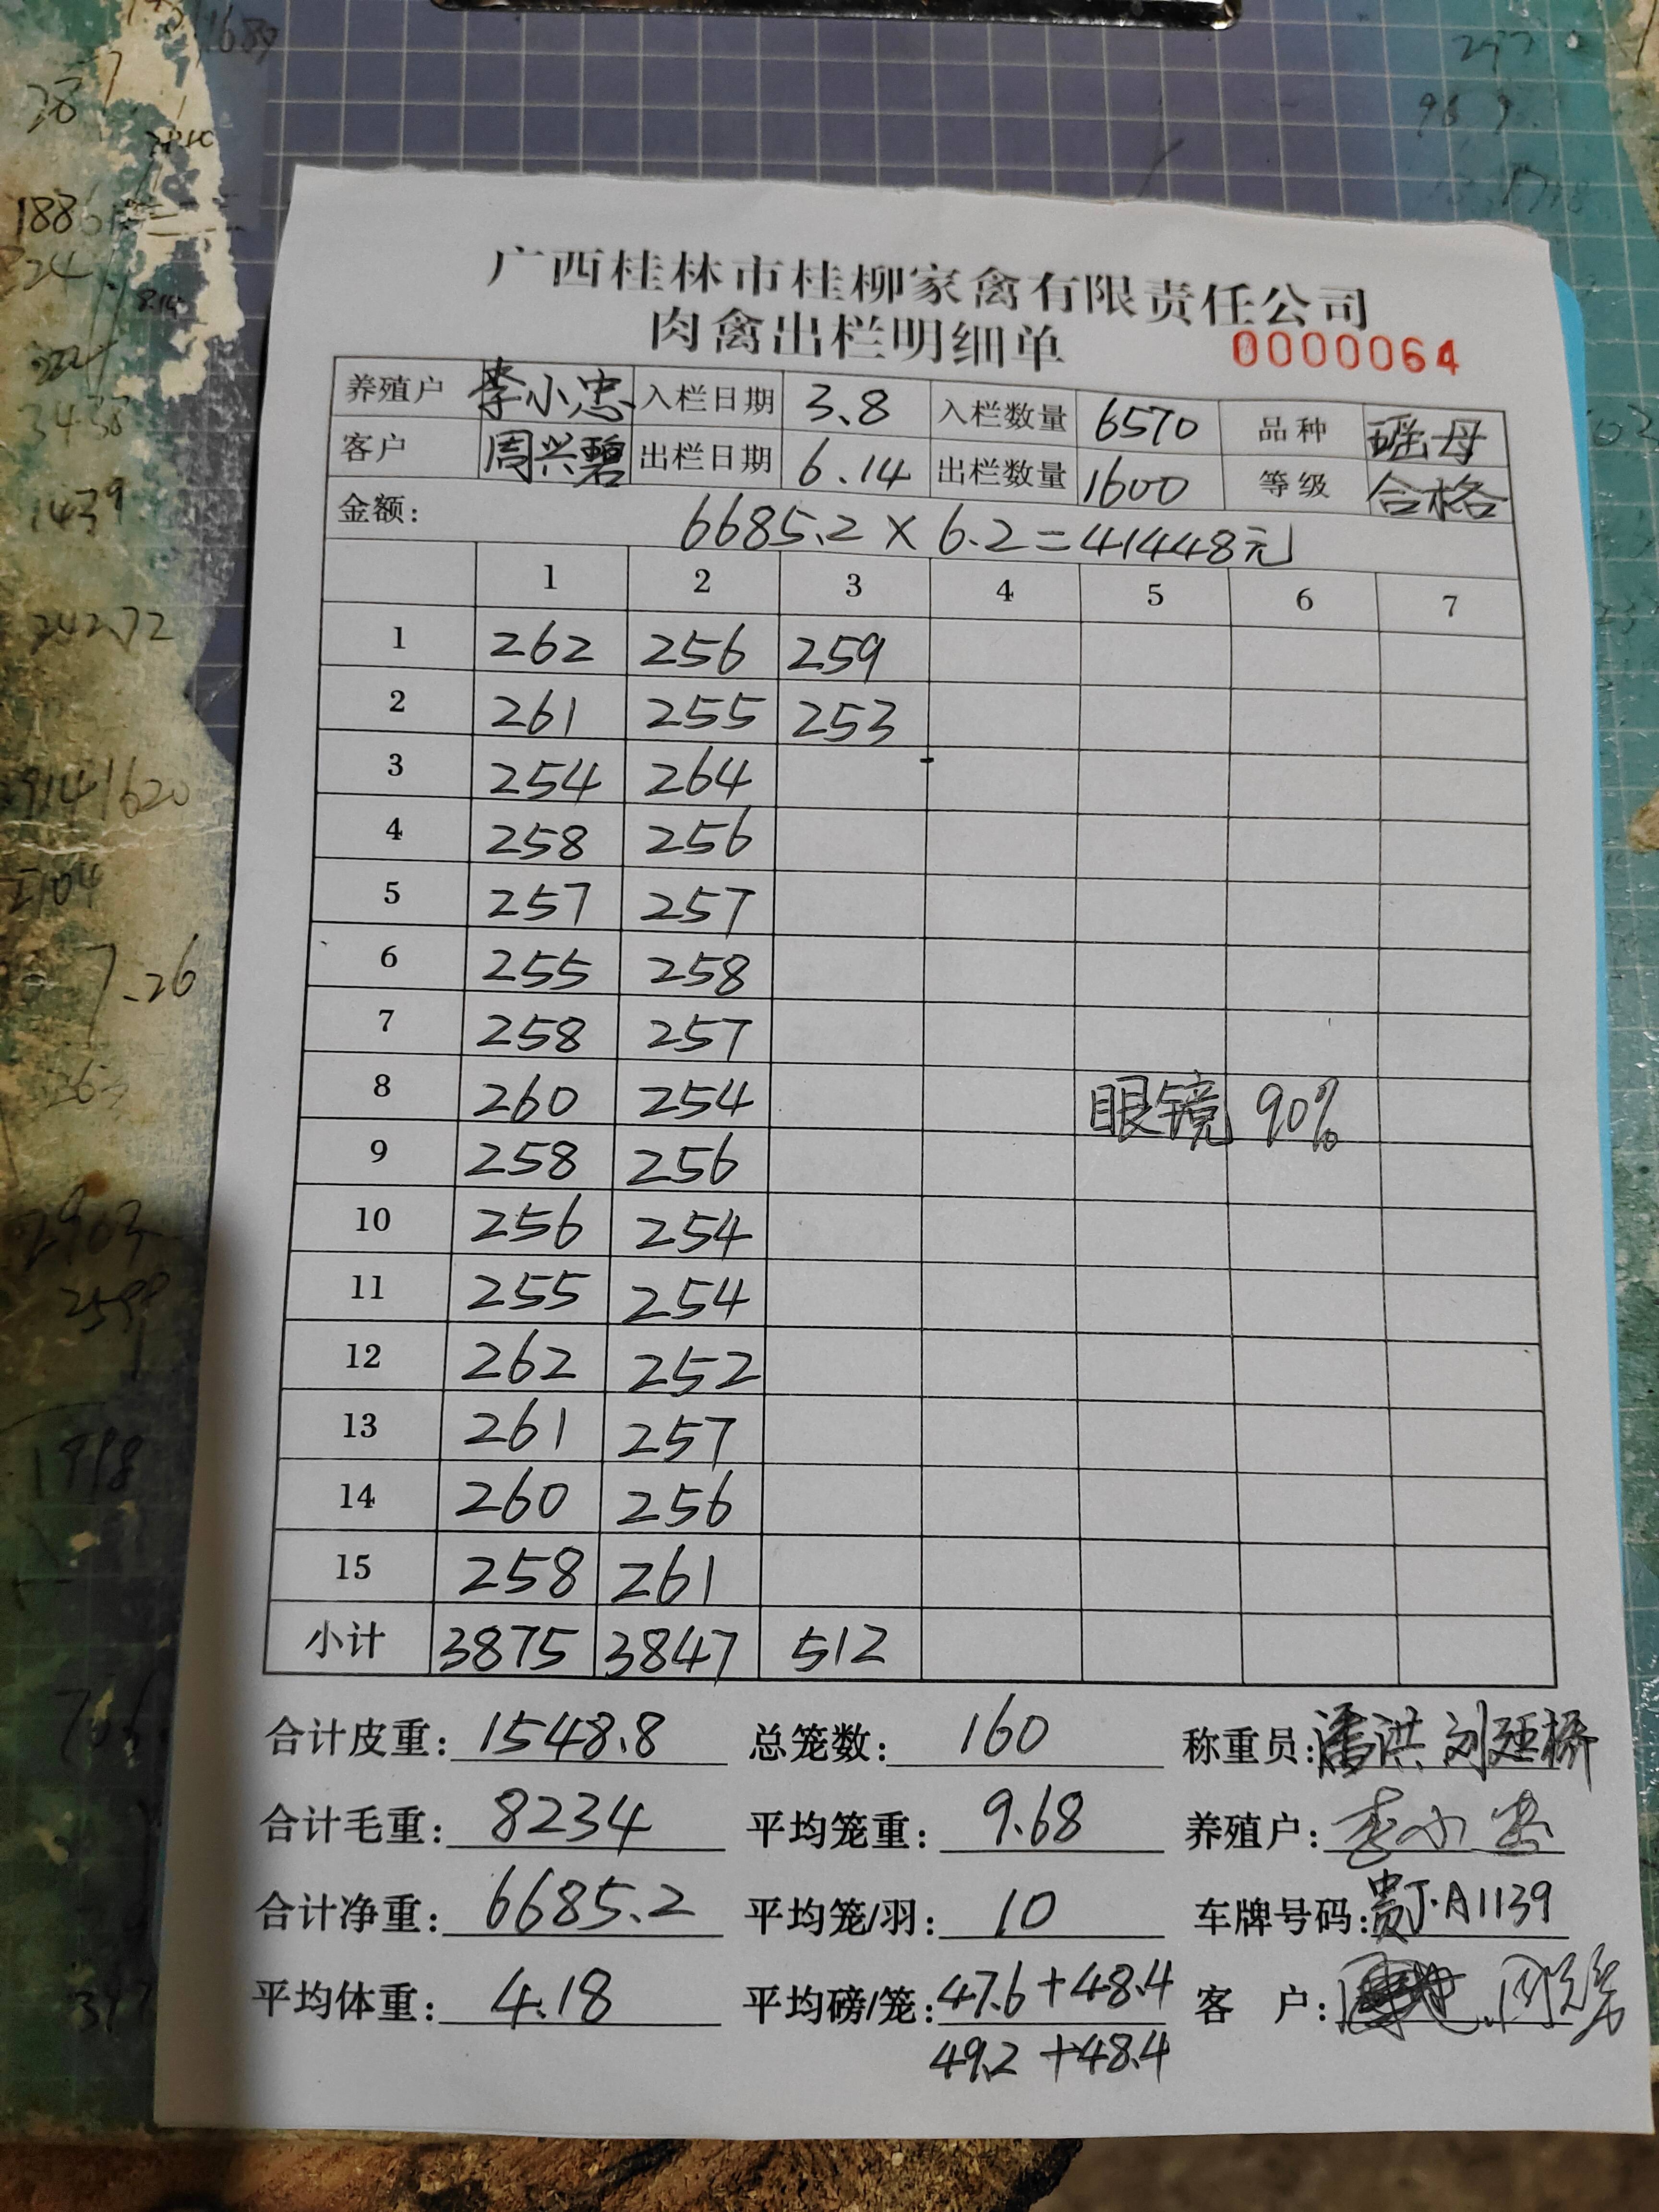 广西桂林市桂柳家禽有限责任公司
肉禽出栏明细单 0000064
养殖户 李小忠 入栏日期 3.8 入栏数量 6570 品种 瑶母
客户 周兴碧 出栏日期 6.14 出栏数量 1600 等级 合格
金额: 6685.2×6.2=41448元
1 2 3 4 5 6 7
1 262 256 259
2 261 255 253
3 254 264
4 258 256
5 257 257
6 255 258
7 258 257
8 260 254 眼镜 90%
9 258 256
10 256 254
11 255 254
12 262 252
13 261 257
14 260 256
15 258 261
小计 3875 3847 512
合计皮重: 1548.8 总笼数: 160 称重员: 潘洪 刘延桥
合计毛重: 8234 平均笼重: 9.68 养殖户: 李小忠
合计净重: 6685.2 平均笼/羽: 10 车牌号码: 贵J·A1139
平均体重: 4.18 平均磅/笼: 47.6+48.4 客 户:
49.2+48.4